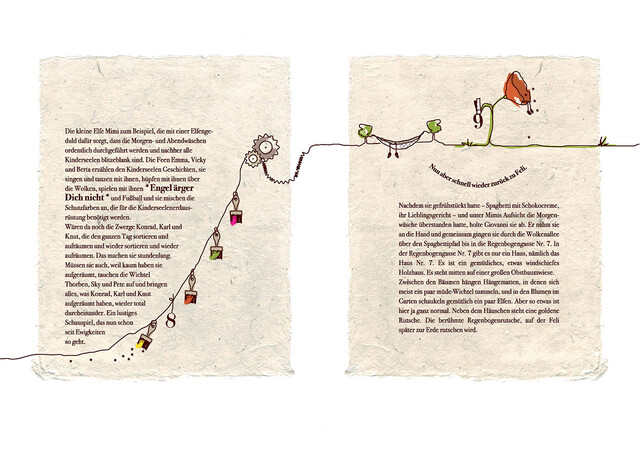 Die kleine Elfe Mimi zum Beispiel, die mit einer Elfenge-
duld dafür sorgt, dass die Morgen- und Abendwäschen
ordentlich durchgeführt werden und nachher alle
Kinderseelen blitzeblank sind. Die Feen Emma, Vicky
und Berta erzählen den Kinderseelen Geschichten, sie
singen und tanzen mit ihnen, hüpfen mit ihnen über
die Wolken, spielen mit ihnen " Engel ärger
Dich nicht " und Fußball und sie mischen die
Schutzfarben an, die für die Kinderseelenerdaus-
rüstung benötigt werden.
Wären da noch die Zwerge Konrad, Karl und
Knut, die den ganzen Tag sortieren und
aufräumen und wieder sortieren und wieder
aufräumen. Das machen sie stundenlang.
Müssen sie auch, weil kaum haben sie
aufgeräumt, tauchen die Wichtel
Thorben, Sky und Pete auf und bringen
alles, was Konrad, Karl und Knut
aufgeräumt haben, wieder total
durcheinander. Ein lustiges
Schauspiel, das nun schon
seit Ewigkeiten
so geht.
8
9
Nun aber schnell wieder zurück zu Feli.
Nachdem sie gefrühstückt hatte – Spaghetti mit Schokocreme,
ihr Lieblingsgericht – und unter Mimis Aufsicht die Morgen-
wäsche überstanden hatte, holte Giovanni sie ab. Er nahm sie
an die Hand und gemeinsam gingen sie durch die Wolkenallee
über den Spaghettipfad bis in die Regenbogengasse Nr. 7. In
der Regenbogengasse Nr. 7 gibt es nur ein Haus, nämlich das
Haus Nr. 7. Es ist ein gemütliches, etwas windschiefes
Holzhaus. Es steht mitten auf einer großen Obstbaumwiese.
Zwischen den Bäumen hängen Hängematten, in denen sich
meist ein paar müde-Wichtel tummeln, und in den Blumen im
Garten schaukeln gemütlich ein paar Elfen. Aber so etwas ist
hier ja ganz normal. Neben dem Häuschen steht eine goldene
Rutsche. Die berühmte Regenbogenrutsche, auf der Feli
später zur Erde rutschen wird.